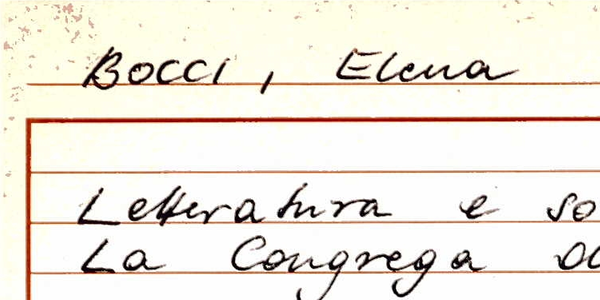 BOCCI, Elena
Letteratura e so
La Congrega d